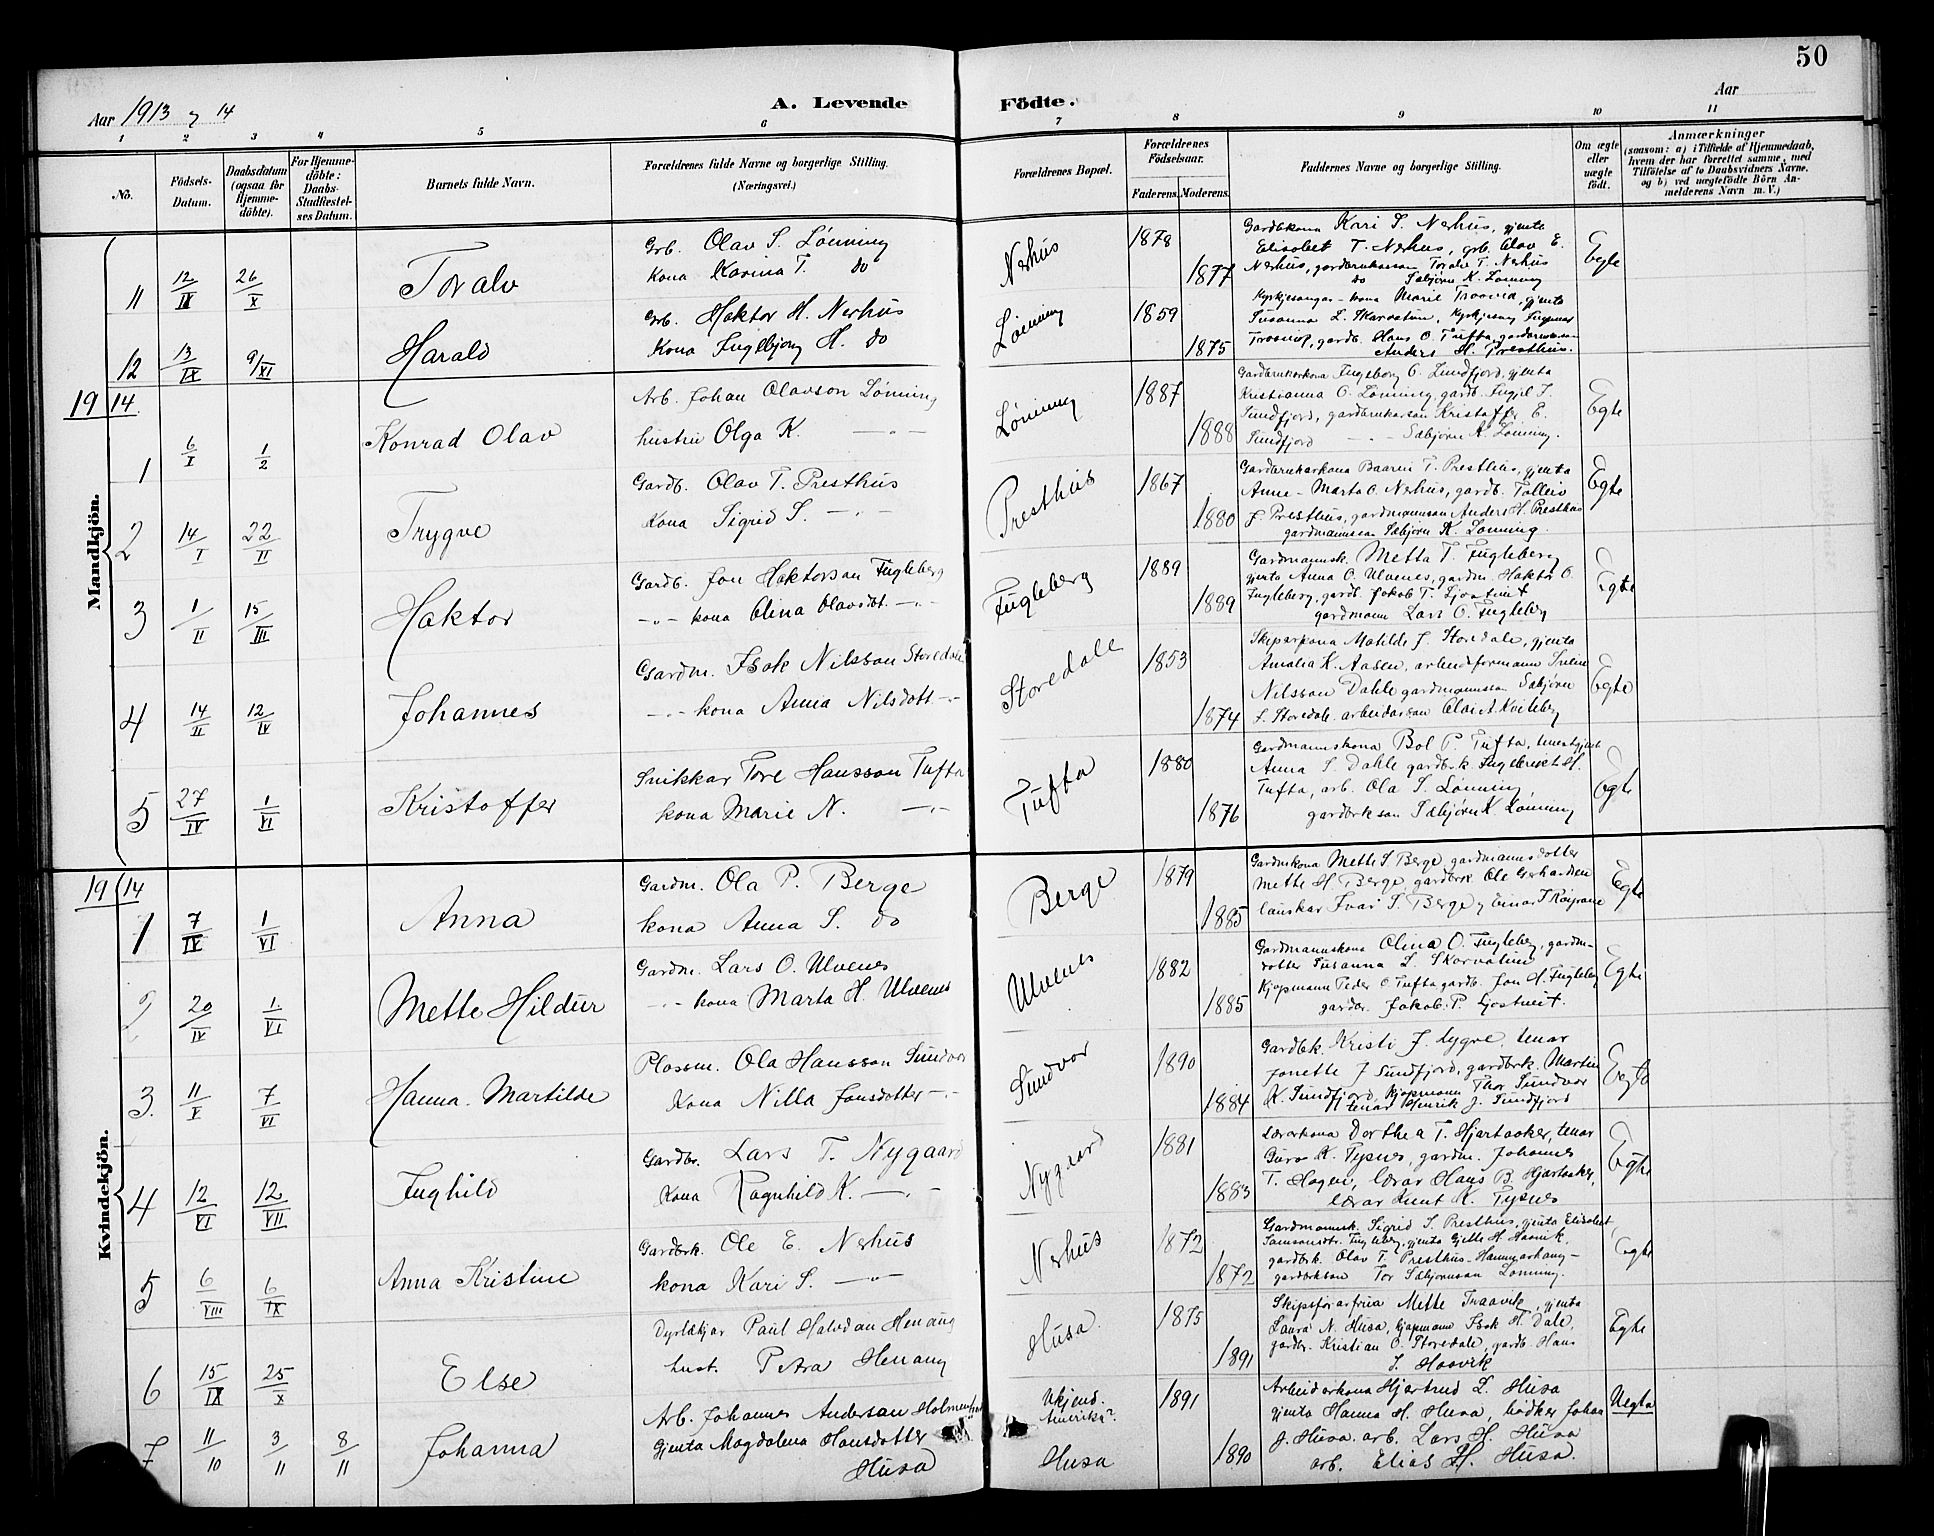 50
Aar 1913 og 14
A. Levende Födte.
Aar
1 2 3 4 5 6 7 8 9 10 11
No.
Födsels-Datum.
Daabsdatum (ogsaa for Hjemme-döbte).
For Hjemme-döbte: Daabs-Stadfæstel-ses Datum.
Barnets fulde Navn.
Forældrenes fulde Navne og borgerlige Stilling. (Næringsvei.)
Forældrenes Bopæl.
Forældrenes Födselsaar.
Faderens. Moderens.
Faddernes Navne og borgerlige Stilling.
Om ægte eller uægte födt.
Anmærkninger
(saasom: a) i Tilfælde af Hjemmedaab, hvem der har forrettet samme, med Tilföielse af to Daabsvidners Navne, og b) ved uægtefödte Börn An-melderens Navn m. V.)
Mandkjön.
11 12/IX 26/X Toralv
Grb. Olav S. Lönning
Kona Karina T. do
Nerhus 1878 1877
Gardbkona Kari S. Nerhus, gjenta
Elisabet T. Nerhus, grb. Olav E.
Nerhus, gardbrukarson Toralv T. Nerhus
do Sæbjörn K. Lönning
Egte
12 13/IX 9/XI Harald
Grb. Haktor H. Nerhus
Kona Ingebjorg H. do
Lönning 1859 1875
Kyrkjesongar-kona Marie
Susanna L. Skarvatun, Kyrkjesong
gardb. Hans O. Tufta, gardmann
Anders H. Presthus.
19 14.
1 6/I 1/2 Konrad Olav
Arb. Johan Olavson Lönning
hustru Olga K. -"-
Lönning 1887 1888
Gardbrukarkona Ingeborg O. Sundfjord, gjenta
Kristianna O. Lönning, gardb. Engel S.
Sundfjord, gardbrukarson Kristoffer E.
Sundfjord -"- Sæbjörn K. Lönning.
Egte
2 14/I 22/II Trygve
Gardb. Olav T. Presthus
Kona Sigrid S. -"-
Presthus 1867 1880
Gardbrukarkona Baaren T. Presthus, gjenta
Anna-Marta O. Nerhus, gardb. Tolleiv
J. Presthus, gardmannson Anders H. Presthus
gardmannsson Sæbjörn K. Lönning.
Egte
3 1/II 15/III Haktor
Gardb. Jon Haktorson Fugleberg
-"- kona Olina Olavsdt. -"-
Fugleberg 1889 1889
Gardmannsk. Metta T. Fugleberg
gjenta Anna O. Ulvenes, gardm. Haktor O.
Fugleberg, gardb. Jakob T. Ljostveit
gardmann Lars O. Fugleberg
Egte
4 14/II 12/IV Johannes
Gardm. Isak Nilsson Storedale
-"- kona Anna Nilsdott -"-
Storedale 1853 1874
Skiparkona Matilde J. Storedale, gjenta
Amalia K. Aasen, arbeidsformann Svein
Nilsson Dahle gardmannsson Sæbjörn
I. Storedale. arbeidarson Olai A. Kvileberg
Egte
5 27/IV 1/VI Kristoffer
Snikkar Tore Hansson Tufta
kona Marie N. -"-
Tufta 1880 1876
Gardmannskona Bol P. Tufta, tenestgjent
Anna S. Dahle gardbrk. Ingebrigt H.
Tufta, arb. Ola S. Lönning,
gardbrkson Sæbjörn K. Lönning
Egte
Kvindekjön.
19 14
1 7/IV 1/VI Anna
Gardm. Ola P. Berge
kona Anna S. do
Berge 1879 1885
Gardmkona Mette S. Berge, gardmannsdotter
Mette H. Berge, gardbrk Ole Gerhardsen
lauskar Ivar S. Berge og Einar
Egte
2 20/IV 1/VI Mette Hildur
Gardm. Lars O. Ulvenes
-"- kona Marta H. Ulvenes
Ulvenes 1882 1885
Gardmannskona Olina O. Fugleberg, gardm-
dotter Susanna L. Skarvatun
Kjöpmann Peder O. Tufta gardb. Jon H. Fugleberg
gardbr. Jakob. P. Ljostveit.
Egte
3. 11/V 7/VI Hanna. Martilde
Plassm. Ola Hansson Sundvor
Kona Nilla Jonsdotter -"-
Sundvor 1890 1884
Gardbk. Kristi J. Lygre, tenar
Jonette J Sundfjord, gardbrk. Martin
K. Sundfjord, kjöpmann Thor Sundvor
tenar Henrik J. Sundfjord
Egte
4 12/VI 12/VII Inghild
Gardbr. Lars T. Nygaard
Kona Ragnhild K. -"-
Nygard 1881 1883
Lærarkona Dorthea T. Hjartaaker, tenar
Guro K. Tysnes, gardm. Johannes
T. Hagen, lærar Hans B. Hjartaaker,
lærar Knut K. Tysnes
Egte
5 6/VIII 6/IX Anna Kristine
Gardbrk. Ole E. Nerhus
kona Kari S. -"-
Nerhus 1872 1872
Gardmannsk. Sigrid S. Presthus, gjenta Elisabet
Samsonsdtr. Fugleberg, gjenta Gjelle H. Haavik,
gardbrk. Olav T. Presthus-Hammarhaug-
gardbrkson Tor Sæbjörnson Lönning.
Egte
6 15/IX 25/X Else
Dyrlækjar Paul Halvdan Henaug
hust. Petra Henaug
Husa. 1875 1891
Skipsförarfrua Mette Traavik, gjenta
Laura N. Husa, kjöpmann Isak H. Dale,
gardbr. Kristian O. Storedale, gardb. Hans
S. Haavik
Egte
7 11/10 3/11 8/11 Johanna
Arb. Johannes Anderson
Gjenta Magdalena Hansdotter
Husa
Ukjend.
Amerika?
Husa
1891 1890
Arbeidarkona Hjertrud L. Husa
gjenta Hanna H. Husa, bödker Johan
J. Husa. arb. Lars H. Husa
arb. Elias H. Husa.
Uegta